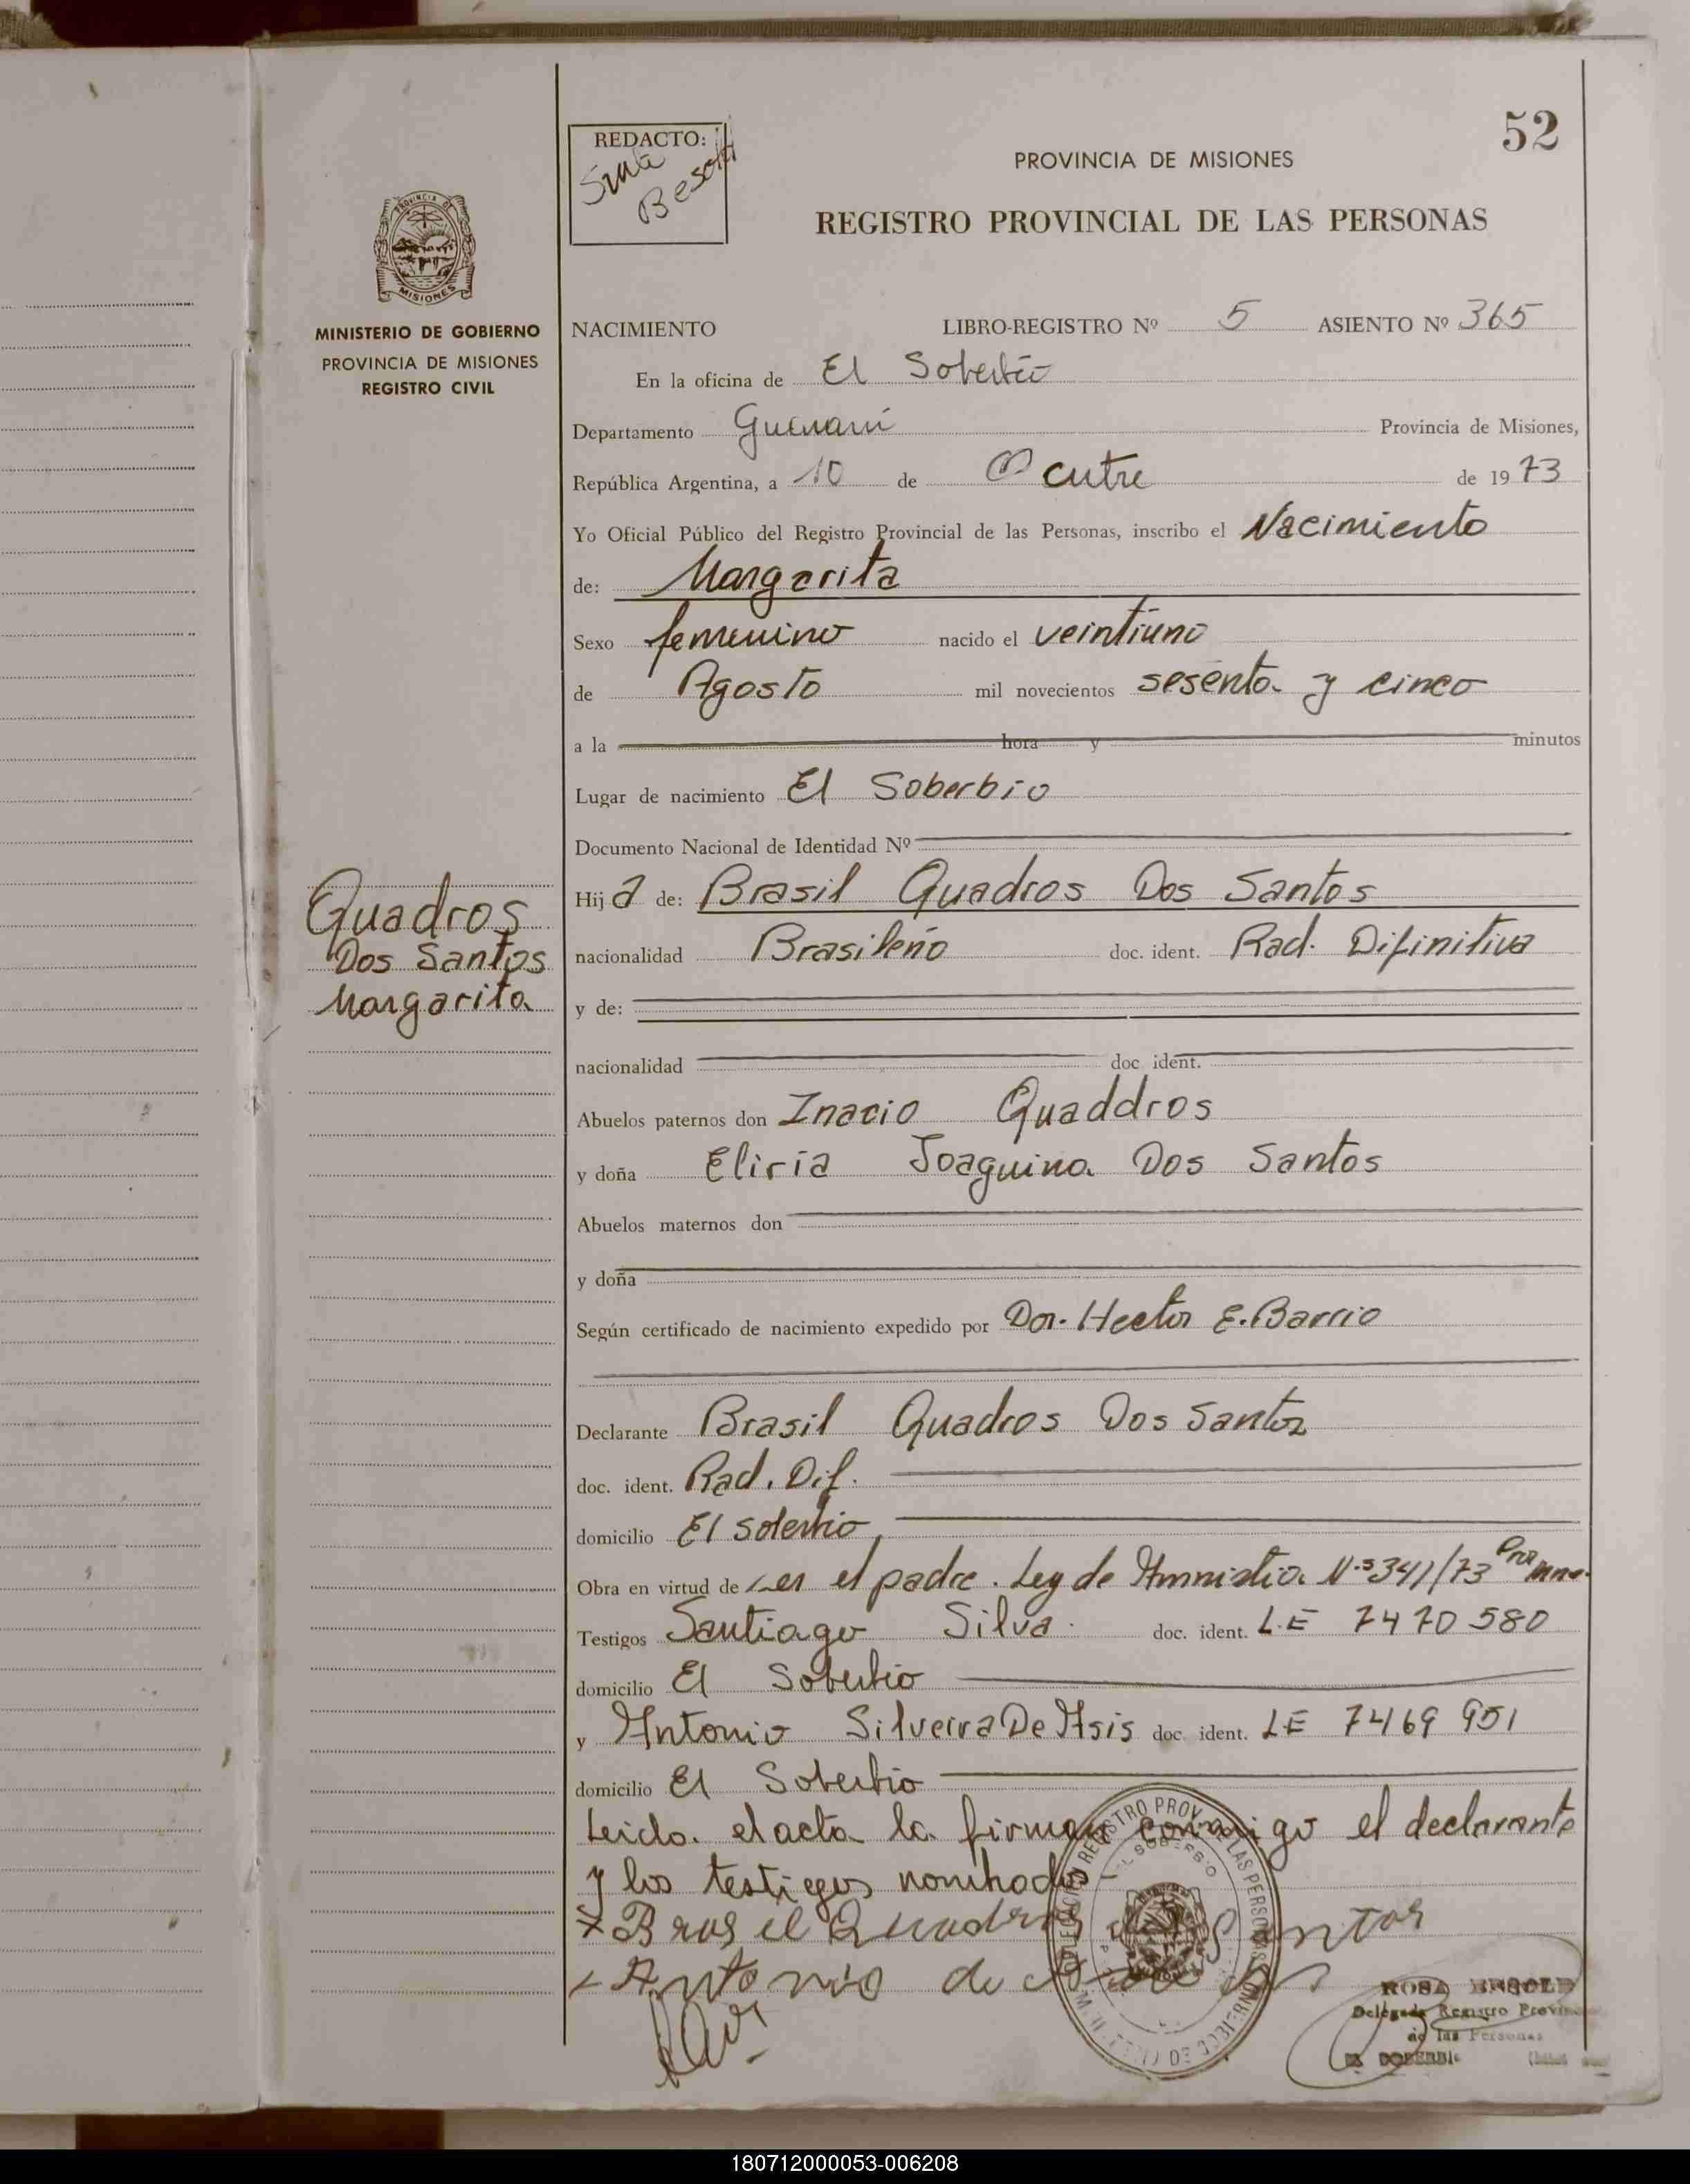 52
REDACTO:
PROVINCIA DE MISIONES
REGISTRO PROVINCIAL DE LAS PERSONAS
MISIONES
MINISTERIO DE GOBIERNO
PROVINCIA DE MISIONES
REGISTRO CIVIL
NACIMIENTO LIBRO-REGISTRO Nº 5 ASIENTO Nº 365
En la oficina de El Soberbio
Departamento Guarani Provincia de Misiones,
República Argentina, a 10 de Octubre de 1973
Yo Oficial Público del Registro Provincial de las Personas, inscribo el Nacimiento
de: Margarita
Sexo femenino nacido el veintiuno
de Agosto mil novecientos sesenta y cinco
a la hora y minutos
Lugar de nacimiento El Soberbio
Documento Nacional de Identidad Nº
Quadros
Dos Santos
Margarita
Hija de: Brasil Quadros Dos Santos
nacionalidad Brasileño doc. ident. Rad. Difinitiva
y de:
nacionalidad doc. ident.
Abuelos paternos don Inacio Quaddros
y doña Eliria Joaquina Dos Santos
Abuelos maternos don
y doña
Según certificado de nacimiento expedido por Dor. Hector E. Barrio
Declarante Brasil Quadros Dos Santos
doc. ident. Rad. Dif.
domicilio El Soberbio
Obra en virtud de ser el padre. Ley de Amnistia N.º 341/73
Testigos Santiago Silva doc. ident. L.E 7470580
domicilio El Soberbio
y Antonio Silveira De Asis doc. ident. LE 7469951
domicilio El Soberbio
Leida el acta la firman conmigo el declarante
y los testigos nombrados
Brasil Quadros dos Santos
Antonio de
ROSA
Delegada Registro
de las Personas
EL SOBERBIO
180712000053-006208